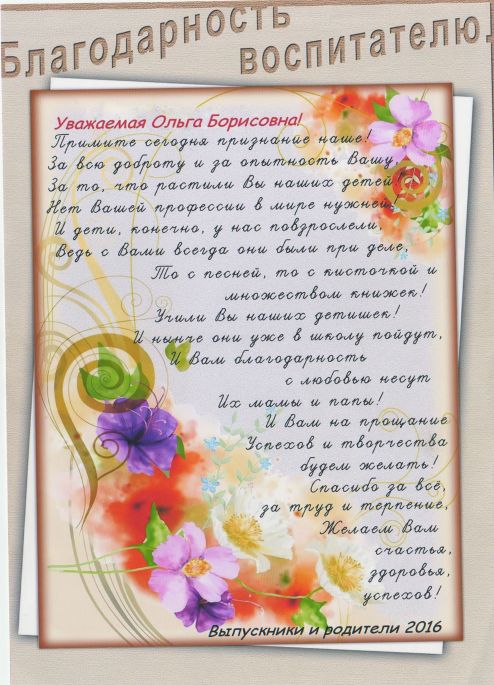 Благодарность
воспитателю!
Уважаемая Ольга Борисовна!
Примите сегодня признание наше!
За всю доброту и за опытность Вашу,
За то, что растили Вы наших детей!
Нет Вашей профессии в мире нужней!
И дети, конечно, у нас повзрослели,
Ведь с Вами всегда они были при деле,
То с песней, то с кисточкой и
множеством книжек!
Учили Вы наших детишек!
И нынче они уже в школу пойдут,
И Вам благодарность
с любовью несут
Их мамы и папы!
И Вам на прощание
Успехов и творчества
будем желать!
Спасибо за всё,
за труд и терпение,
Желаем Вам
счастья,
здоровья,
успехов!
Выпускники и родители 2016